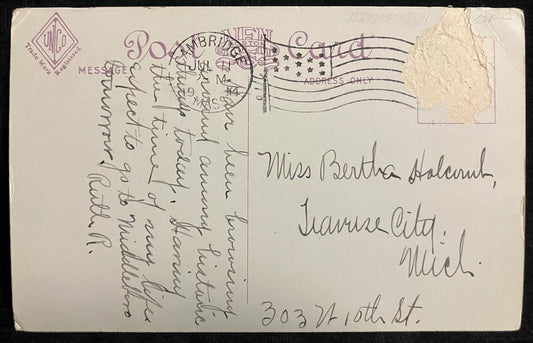 UNCo
Trade Mark Registered
Post Card
NEW
MESSAGE
ADDRESS ONLY
CAMBRIDGE
JUL
M
MASS
Have been browsing
around among historic
things today. Having
the time of my life.
Expect to go to Middleboro
tomorrow. Ruth R.
Miss Bertha Holcomb,
Traverse City,
Mich.
303 W 10th St.